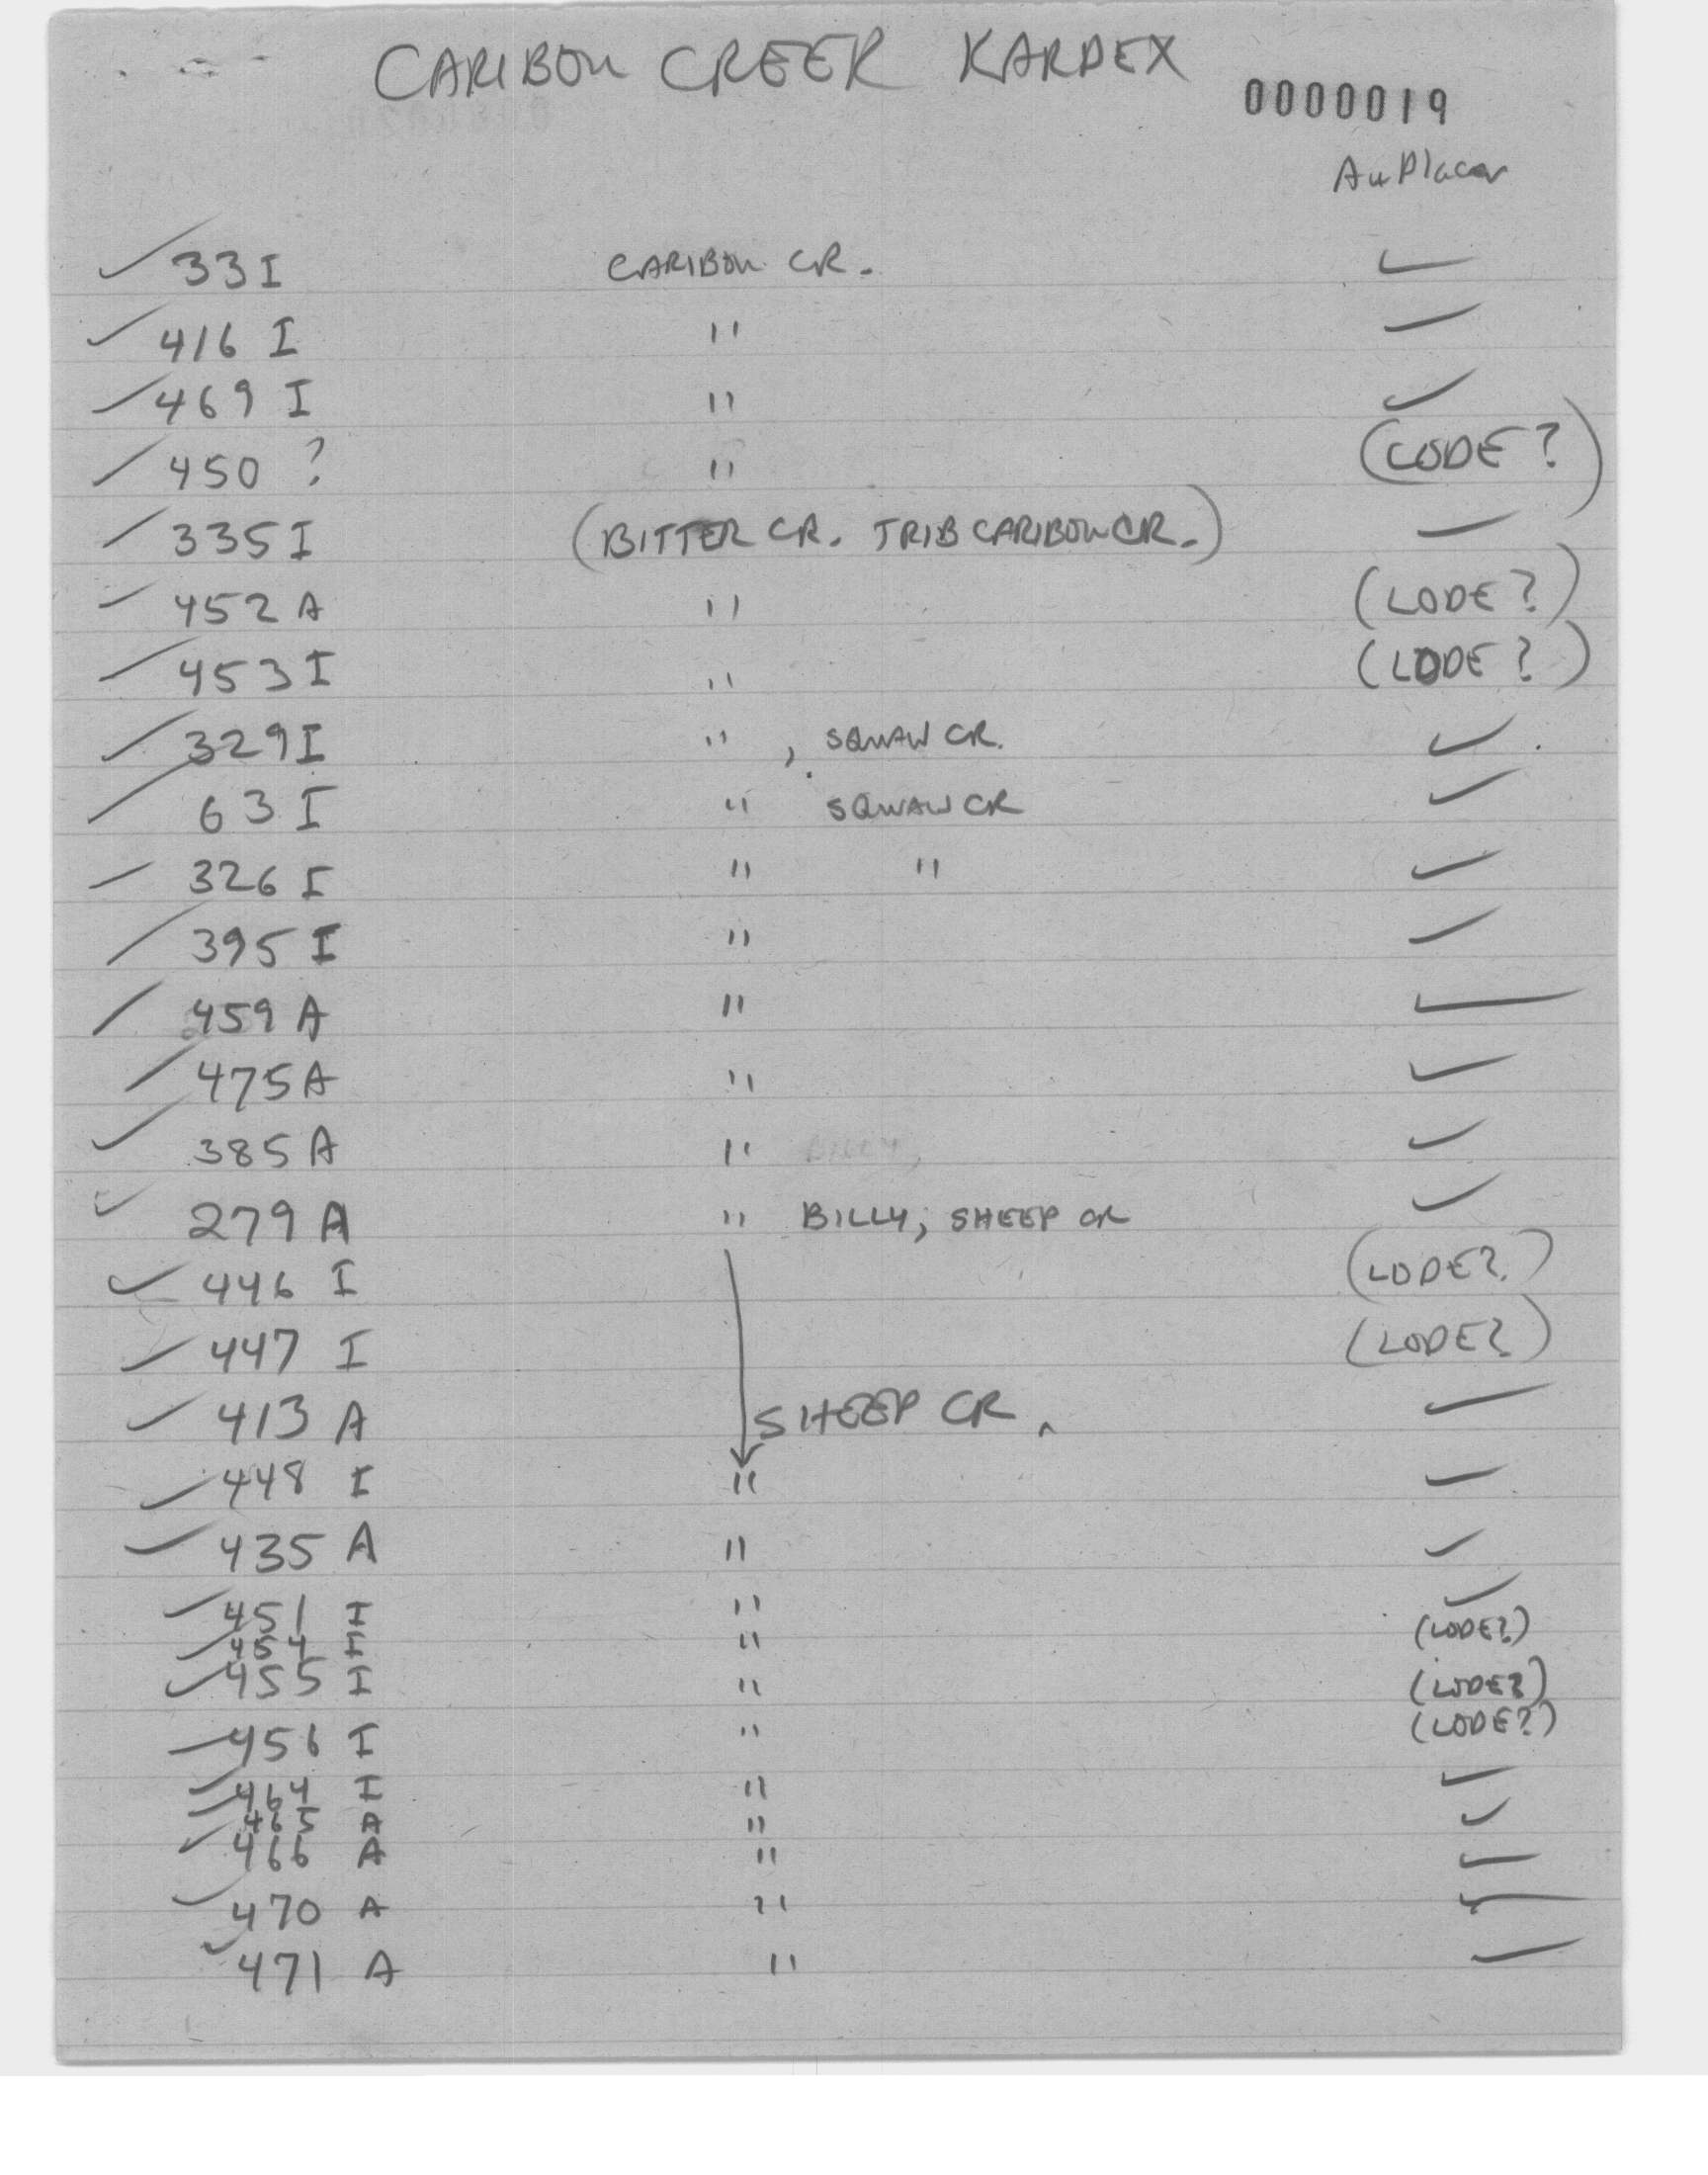 CARIBOU CREEK KARDEX
0000019
Au Placer
✓ 33 I CARIBOU CR. ✓
✓ 416 I " ✓
✓ 469 I " ✓
✓ 450 ? " (LODE?)
✓ 335 I (BITTER CR. TRIB CARIBOU CR.) ✓
✓ 452 A " (LODE?)
✓ 453 I " (LODE?)
✓ 329 I " , SQUAW CR. ✓
✓ 63 I " SQUAW CR ✓
✓ 326 I " " ✓
✓ 395 I " ✓
✓ 459 A " ✓
✓ 475 A " ✓
✓ 385 A " ✓
✓ 279 A " BILLY, SHEEP CR ✓
✓ 446 I (LODE?)
✓ 447 I (LODE?)
✓ 413 A SHEEP CR. ✓
✓ 448 I " ✓
✓ 435 A " ✓
✓ 451 I " ✓
✓ 454 I " (LODE?)
✓ 455 I " (LODE?)
✓ 456 I " (LODE?)
✓ 464 I " ✓
✓ 465 A " ✓
✓ 466 A " ✓
✓ 470 A " ✓
✓ 471 A " ✓